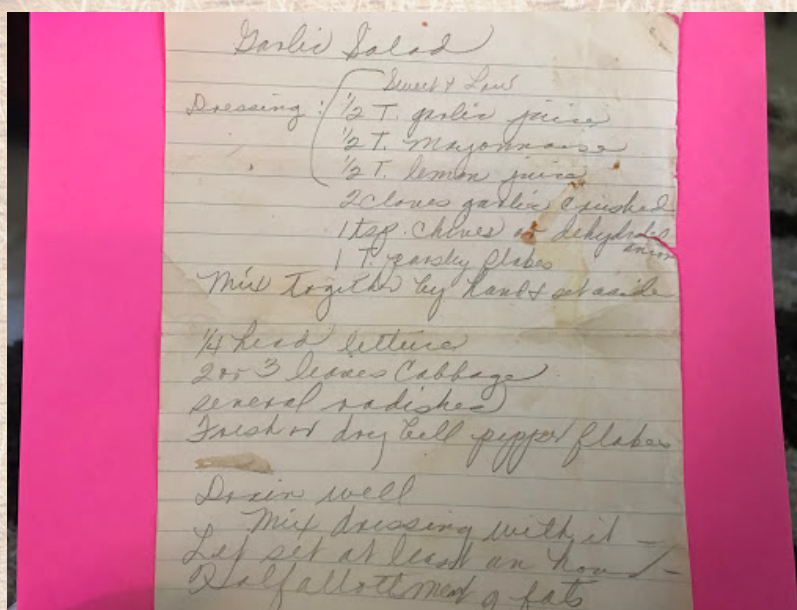 Garlic Salad
Sweet & Low
Dressing: 1/2 T. garlic juice
1/2 T. Mayonnaise
1/2 T. lemon juice
2 cloves garlic crushed
1 tsp. Chives or dehydrated
onion
1 T. parsley flakes
Mix together by hand & set aside
1/4 head lettuce
2 or 3 leaves Cabbage
several radishes
Fresh or dry bell pepper flakes
Drain well
Mix dressing with it -
Let set at least an hour -
Half allotment of fats